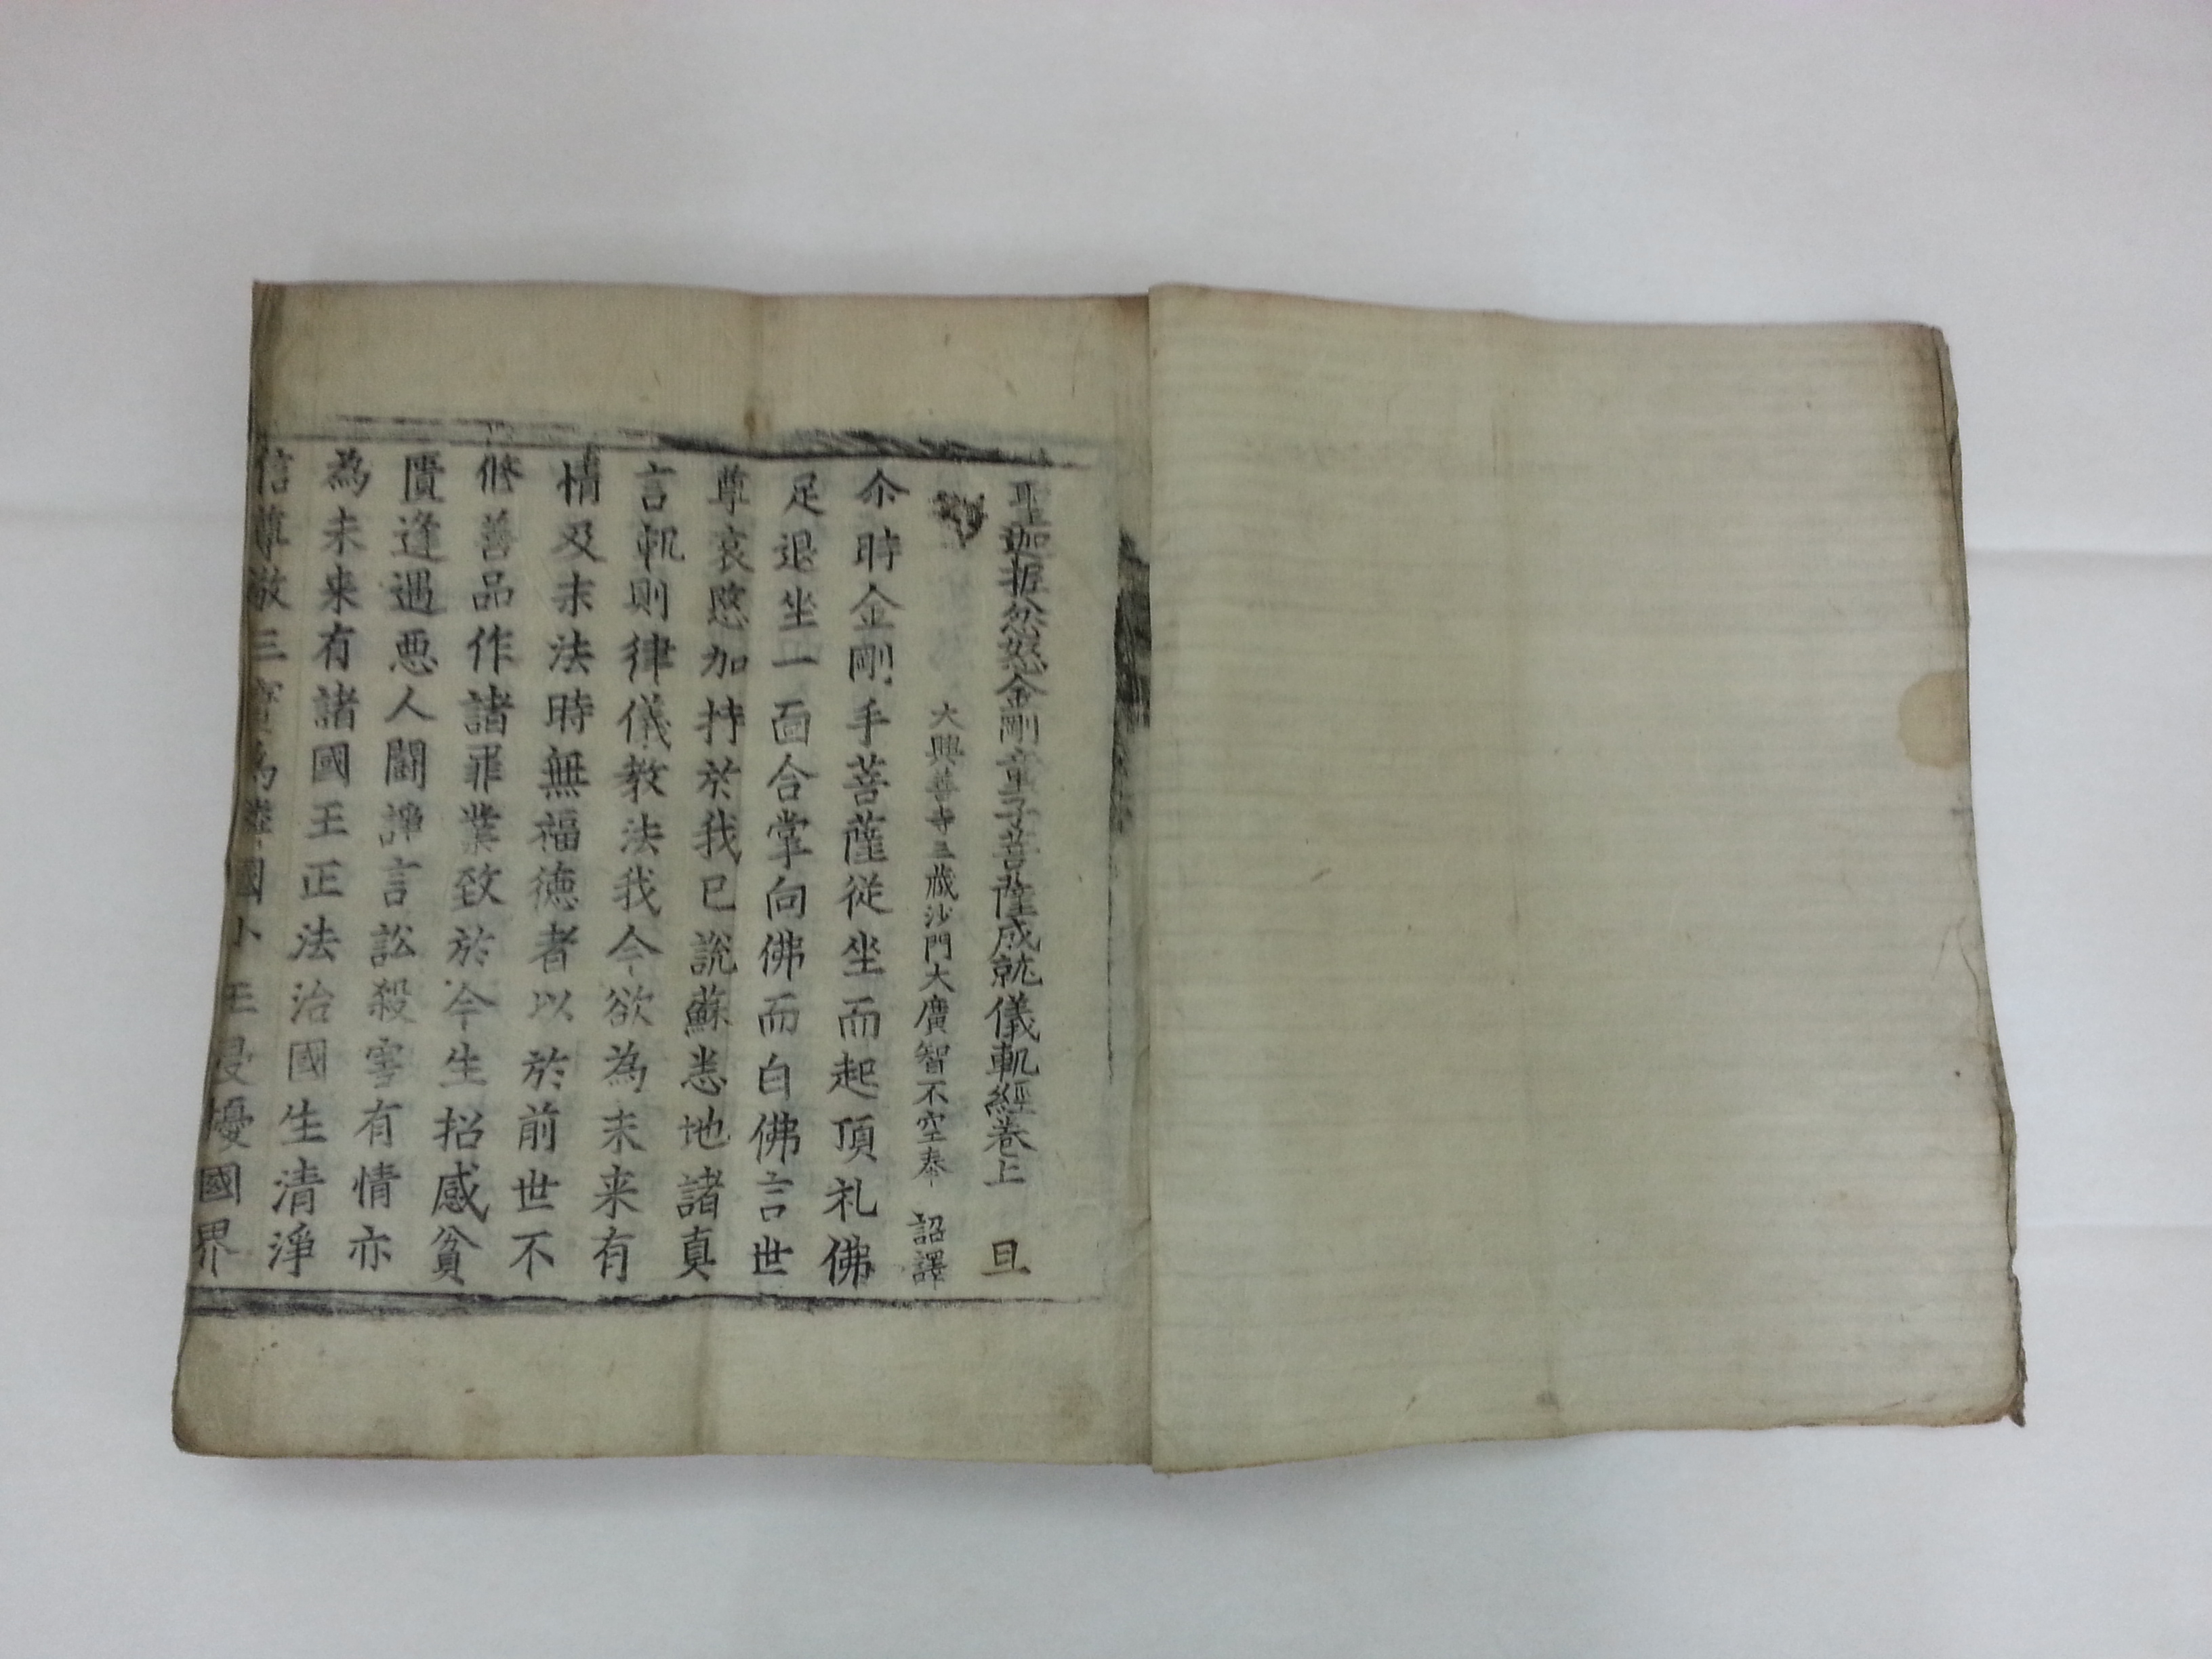 聖迦抳忿怒金剛童子菩薩成就儀軌經卷上 旦
大興善寺三藏沙門大廣智不空奉 詔譯
尒時金剛手菩薩從坐而起頂礼佛
足退坐一面合掌向佛而白佛言世
尊哀愍加持於我已說蘇悉地諸真
言軌則律儀教法我今欲為未来有
情及末法時無福德者以於前世不
修善品作諸罪業致於今生招感貧
匱逢遇惡人鬪諍言訟殺害有情亦
為未来有諸國王正法治國生清淨
信尊敬三寶為隣國小王侵擾國界